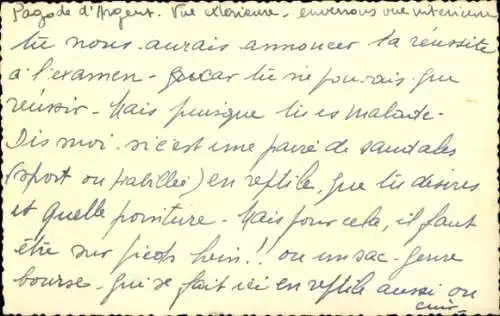 Pagode d'Argent. Vue extérieure - enverrons vue intérieure
tu nous aurais annoncer ta réussite
à l'examen - car tu ne pouvais que
réussir - Mais puisque tu es malade -
Dis moi si c'est une paire de sandales
(sport ou habillée) en reptile, que tu désires
et quelle pointure - Mais pour cela, il faut
être sur pieds hein!! ou un sac - genre
bourse - qui se fait ici en reptile aussi ou
cuir